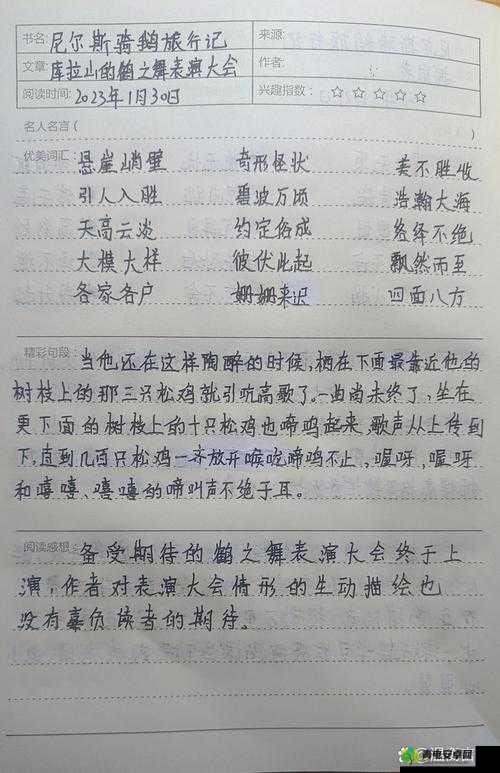 书名: 尼尔斯骑鹅旅行记 来源:
文章: 库拉山的鹤之舞表演大会 作者:
阅读时间: 2023年1月30日 兴趣指数: ☆☆☆☆☆
名人名言( )
优美词汇: 悬崖峭壁 奇形怪状 美不胜收
引人入胜 碧波万顷 浩瀚大海
天高云淡 约定俗成 络绎不绝
大模大样 彼伏此起 飘然而至
各家各户 姗姗来迟 四面八方
精彩句段: 当他还在这样陶醉的时候,栖在下面最靠近他的
树枝上的那三只松鸡就引吭高歌了。一曲尚未终了,坐在
更下面的树枝上的十只松鸡也啼鸣起来,歌声从上传到
下,直到几百只松鸡一齐放开喉咙啼鸣不止,喔呀,喔呀
和嘻嘻、嘻嘻的啼叫声不绝于耳。
阅读感想: 备受期待的鹤之舞表演大会终于上
演,作者对表演大会情形的生动描绘也
没有辜负读者的期待。
青电安卓网